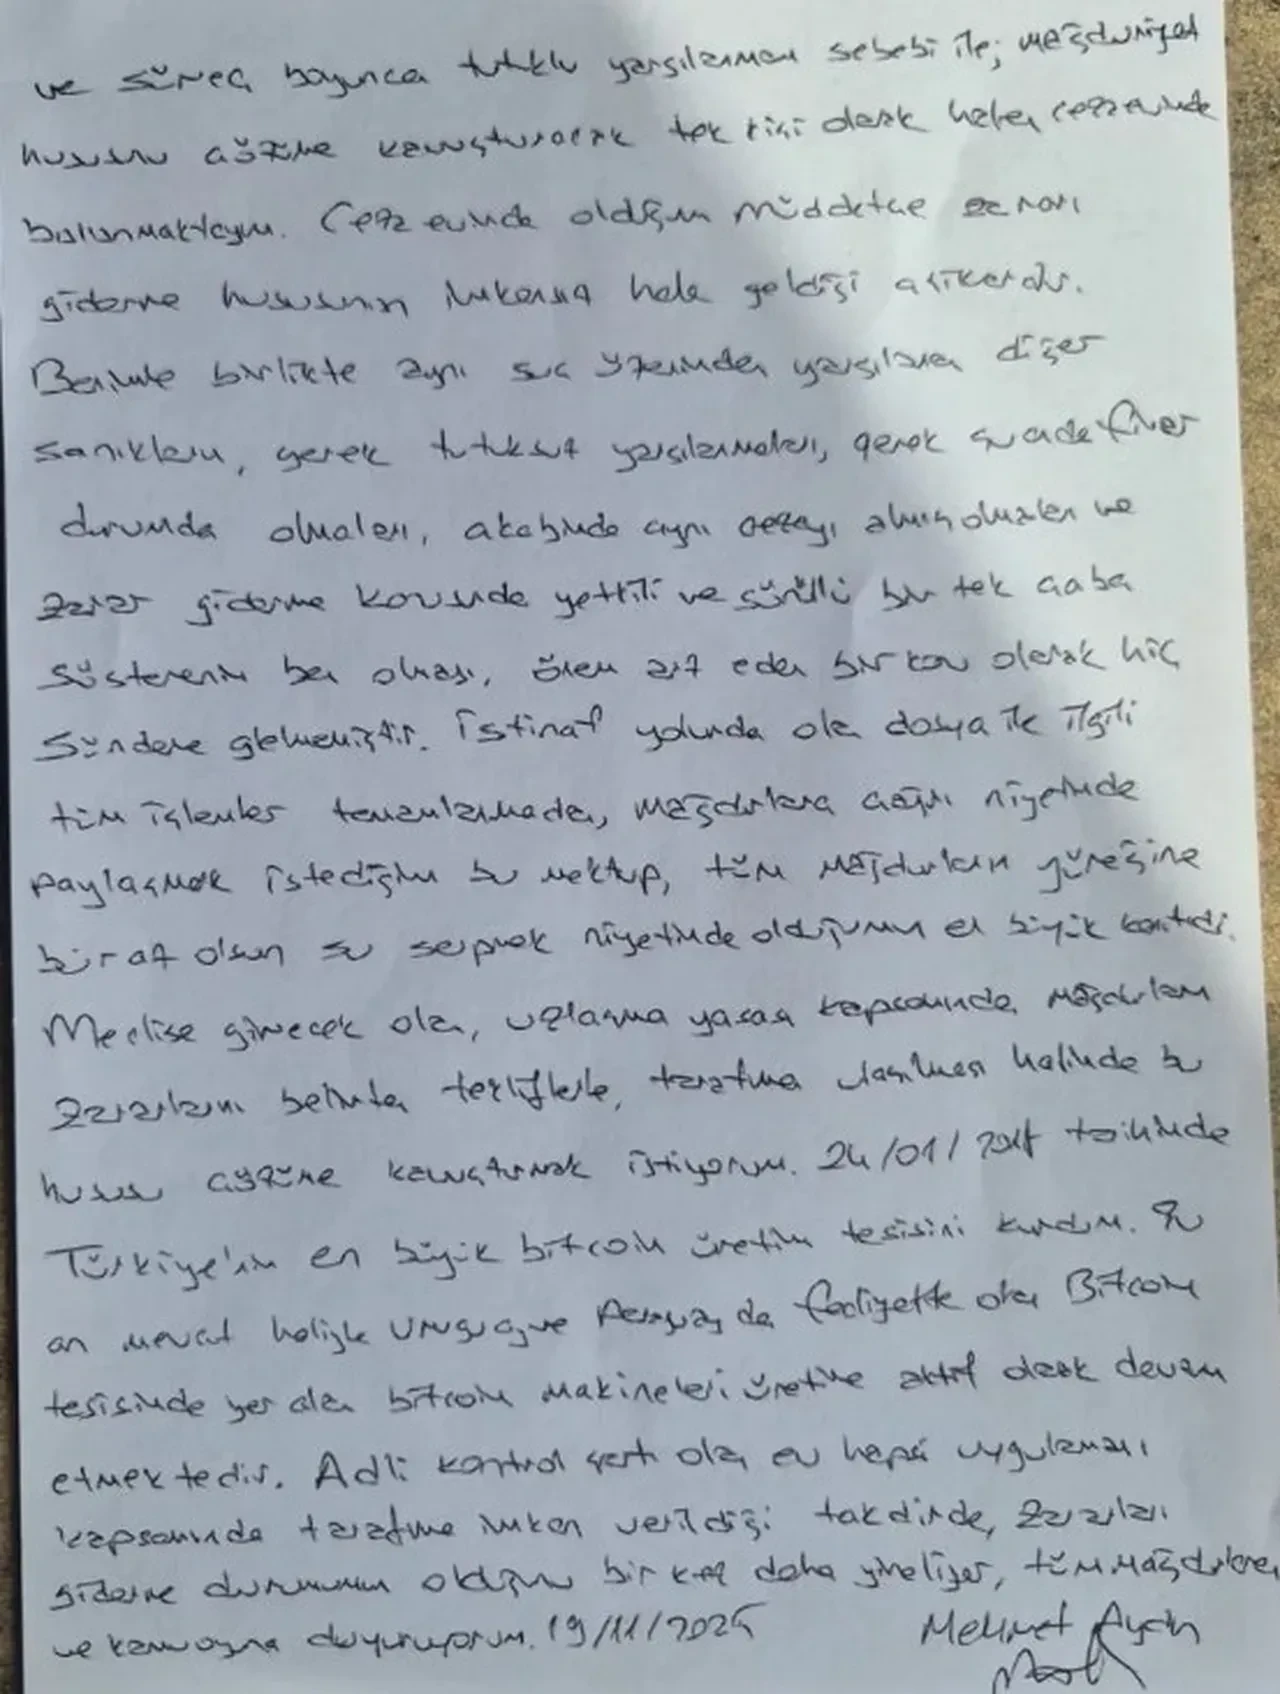 ve süreç boyunca tutuklu yargılanmam sebebi ile; mağduriyet
hususunu çözüme kavuşturacak tek kişi olarak halen cezaevinde
bulunmaktayım. Cezaevinde olduğum müddetçe zararı
giderme hususunun imkansız hale geldiği aşikardır.
Benimle birlikte aynı suç üzerinden yargılanan diğer
sanıkların, gerek tutuksuz yargılanmaları, gerek şu anda firar
durumda olmaları, akabinde aynı cezayı almış olmaları ve
zarar giderme konusunda yetkili ve gönüllü bir tek çaba
gösterenin ben olması, önem arz eden bir konu olarak hiç
gündeme gelmemiştir. İstinaf yolunda olan dosya ile ilgili
tüm işlemler tamamlanmadan, mağdurlara çağrı niyetinde
paylaşmak istediğim bu mektup, tüm mağdurların yüreğine
biraz olsun su serpmek niyetinde olduğumun en büyük kanıtıdır.
Meclise girecek olan, uzlaşma yasası kapsamında mağdurların
zararlarını belirten tekliflerle, tarafıma ulaşılması halinde bu
hususu çözüme kavuşturmak istiyorum. 24/01/2018 tarihinde
Türkiye'nin en büyük bitcoin üretim tesisini kurdum. Şu
an mevcut haliyle Uruguay ve Paraguay da faaliyette olan Bitcoin
tesisinde yer alan bitcoin makineleri üretime aktif olarak devam
etmektedir. Adli kontrol şartı olan ev hapsi uygulaması
kapsamında tarafıma imkan verildiği takdirde, zararları
giderme durumumun olduğunu bir kez daha yineliyor, tüm mağdurlara
ve kamuoyuna duyuruyorum. 19/11/2025 Mehmet Aydın